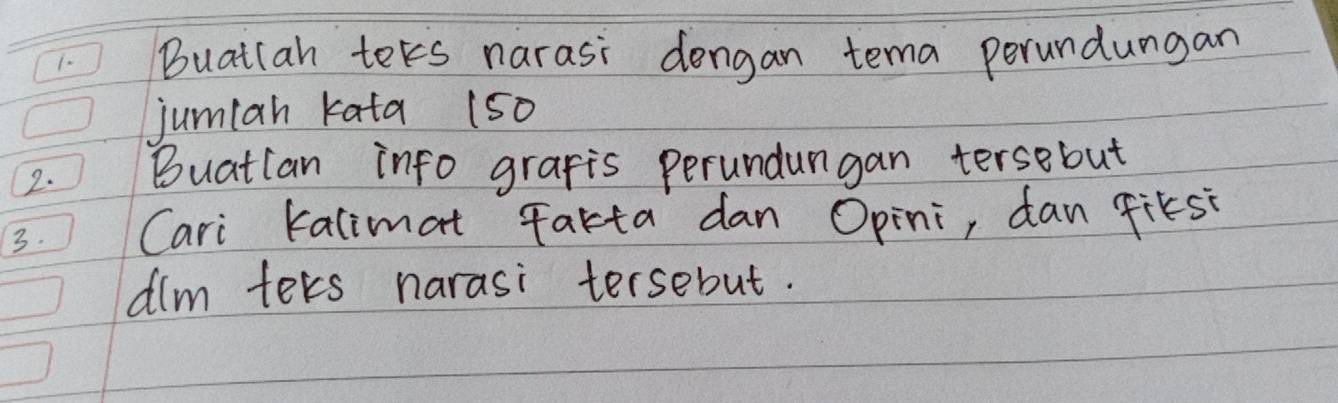 1. Buatlah teks narasi dengan tema perundungan
jumlah kata 150
2. Buatlan info grafis perundungan tersebut
3. Cari kalimat fakta dan Opini, dan fiksi
dlm teks narasi tersebut.